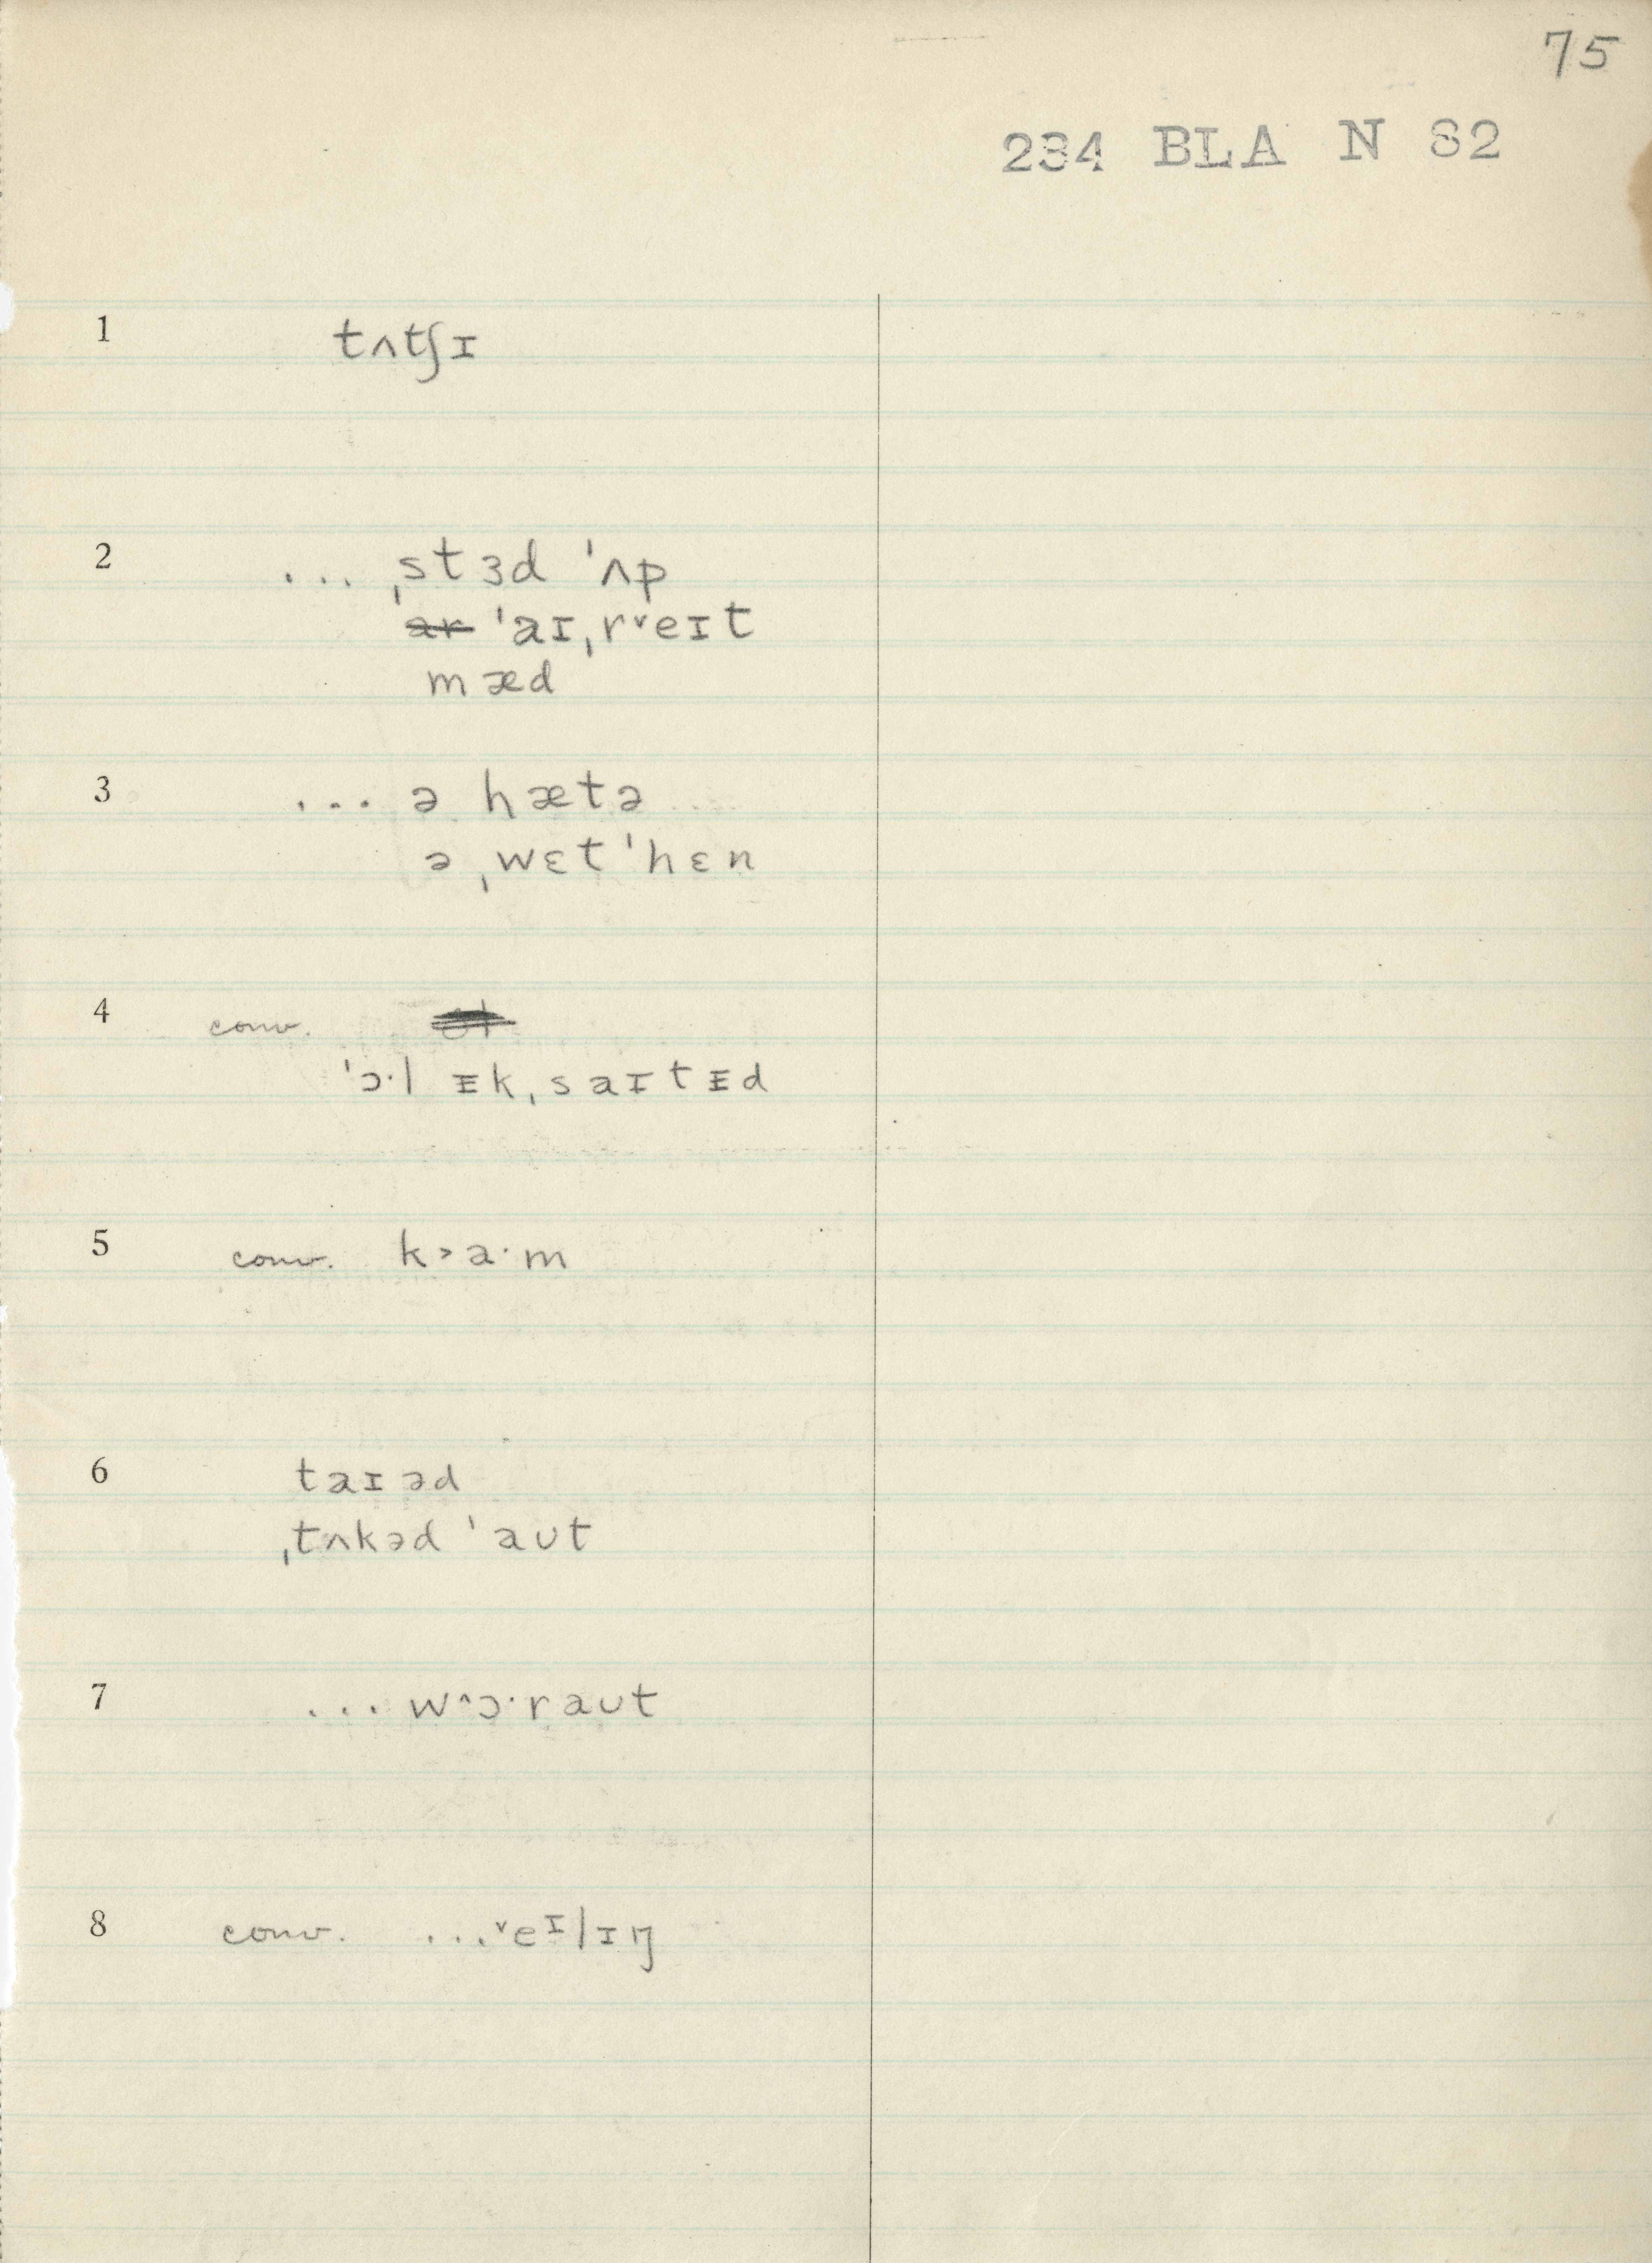 75
234 BLA N 82
1 tʌtʃɪ
2 ... ˌstɜd ˈʌp
ˈaɪˌrᵛeɪt
mæd
3 ... ə hætə
ə ˌwɛt ˈhɛn
4 conv.
ˈɔ·l ᵻkˌsaɪtᵻd
5 conv. k˃a·m
6 taɪəd
ˌtʌkəd ˈaʊt
7 ... w^ɔ·raʊt
8 conv. ...ᵛeᶦlɪŋ